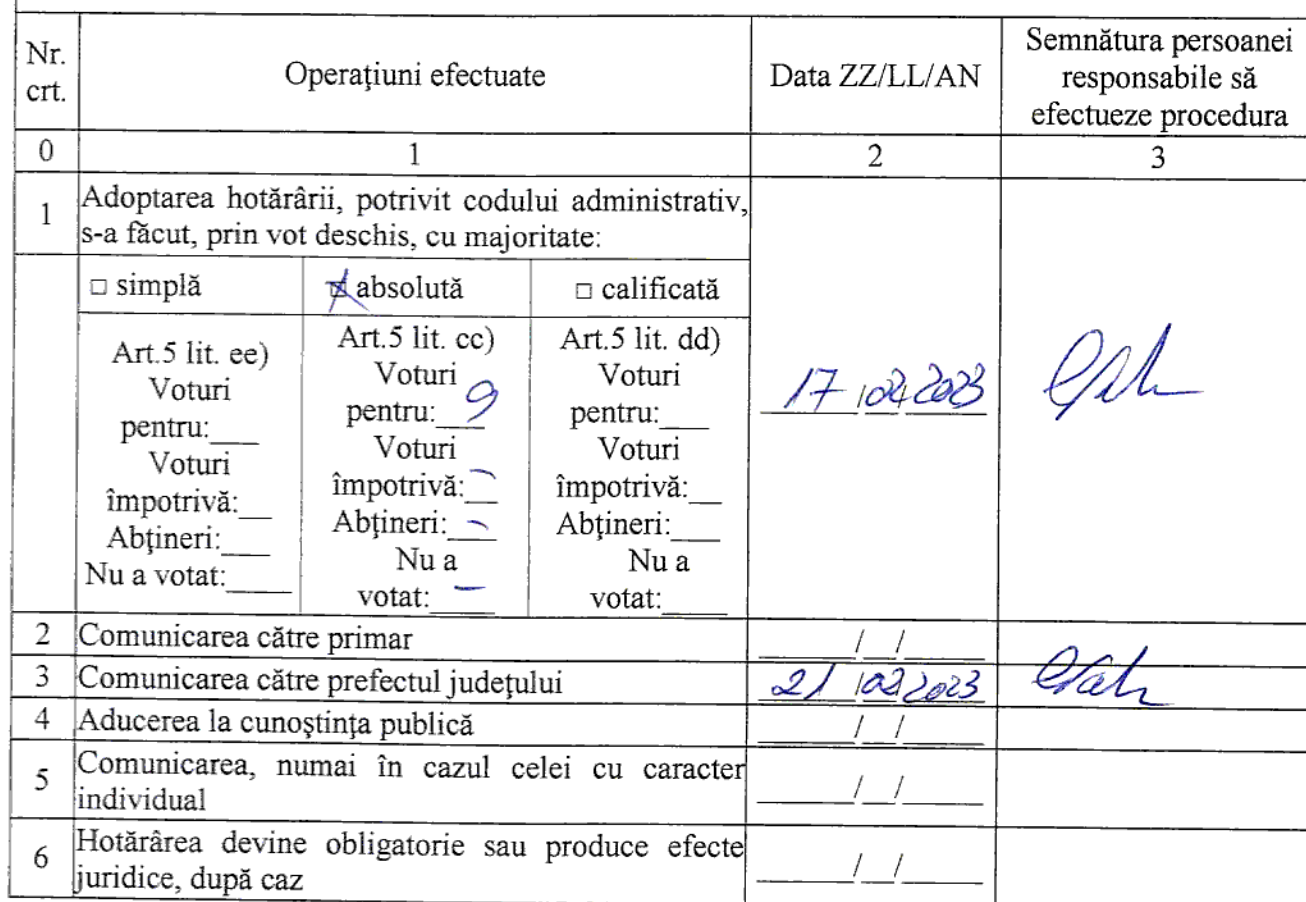 Nr. crt.
Operaţiuni efectuate
Data ZZ/LL/AN
Semnătura persoanei
responsabile să
efectueze procedura
0
1
2
3
1
Adoptarea hotărârii, potrivit codului administrativ,
s-a făcut, prin vot deschis, cu majoritate:
□ simplă
☒ absolută
□ calificată
Art.5 lit. ee)
Voturi
pentru:___
Voturi
împotrivă:__
Abţineri:___
Nu a votat:____
Art.5 lit. cc)
Voturi
pentru: 9
Voturi
împotrivă: -
Abţineri: -
Nu a
votat: -
Art.5 lit. dd)
Voturi
pentru:___
Voturi
împotrivă:__
Abţineri:___
Nu a
votat:____
17/02/2023
2
Comunicarea către primar
____/__/____
3
Comunicarea către prefectul judeţului
21/02/2023
4
Aducerea la cunoştinţa publică
____/__/____
5
Comunicarea, numai în cazul celei cu caracter
individual
____/__/____
6
Hotărârea devine obligatorie sau produce efecte
juridice, după caz
____/__/____